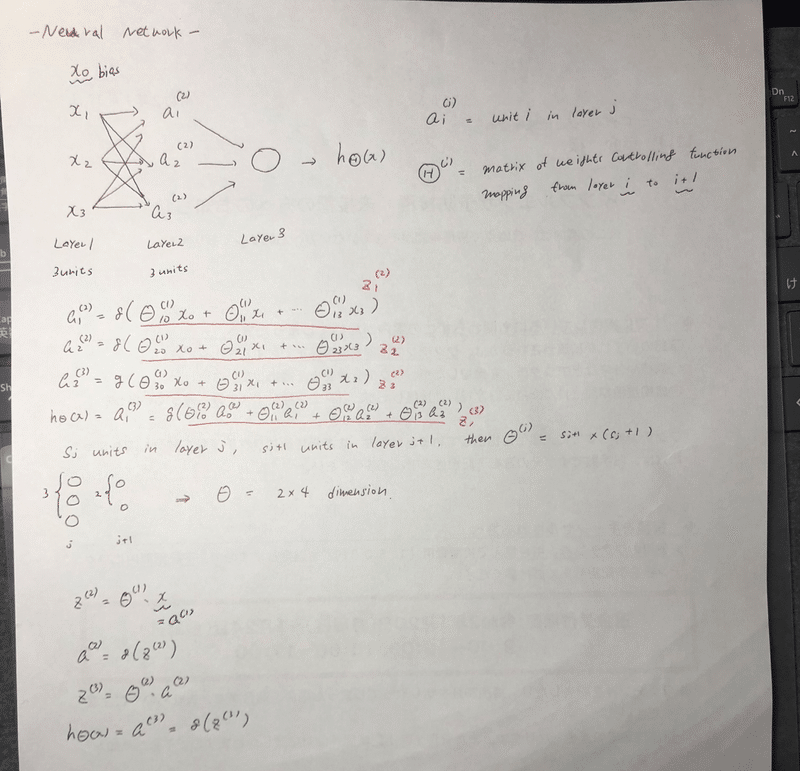 - Neural Network -
x₀ bias
x₁ a₁⁽²⁾
x₂ a₂⁽²⁾ → hΘ(x)
x₃ a₃⁽²⁾
Layer1 Layer2 Layer3
3units 3units
aᵢ⁽ʲ⁾ = unit i in layer j
Θ⁽ʲ⁾ = matrix of weights controlling function
mapping from layer j to j+1
z₁⁽²⁾
a₁⁽²⁾ = g(Θ₁₀⁽¹⁾x₀ + Θ₁₁⁽¹⁾x₁ + ... Θ₁₃⁽¹⁾x₃)
a₂⁽²⁾ = g(Θ₂₀⁽¹⁾x₀ + Θ₂₁⁽¹⁾x₁ + ... Θ₂₃⁽¹⁾x₃) z₂⁽²⁾
a₃⁽²⁾ = g(Θ₃₀⁽¹⁾x₀ + Θ₃₁⁽¹⁾x₁ + ... Θ₃₃⁽¹⁾x₂) z₃⁽²⁾
hΘ(x) = a₁⁽³⁾ = g(Θ₁₀⁽²⁾a₀⁽²⁾ + Θ₁₁⁽²⁾a₁⁽²⁾ + Θ₁₂⁽²⁾a₂⁽²⁾ + Θ₁₃⁽²⁾a₃⁽²⁾) z₁⁽³⁾
Sj units in layer j, sj+1 units in layer j+1. then Θ⁽ʲ⁾ = sj+1 × (sj + 1)
3 { 2 { ⇒ Θ = 2×4 dimension.
j j+1
z⁽²⁾ = Θ⁽¹⁾ · x
= a⁽¹⁾
a⁽²⁾ = g(z⁽²⁾)
z⁽³⁾ = Θ⁽²⁾ · a⁽²⁾
hΘ(x) = a⁽³⁾ = g(z⁽³⁾)
Dn
F12
け